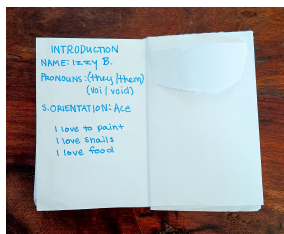 INTRODUCTION
NAME: Izzy B.
PRONOUNS: (they/them)
(voi/void)
S.ORIENTATION: Ace
I love to paint
I love snails
I love food